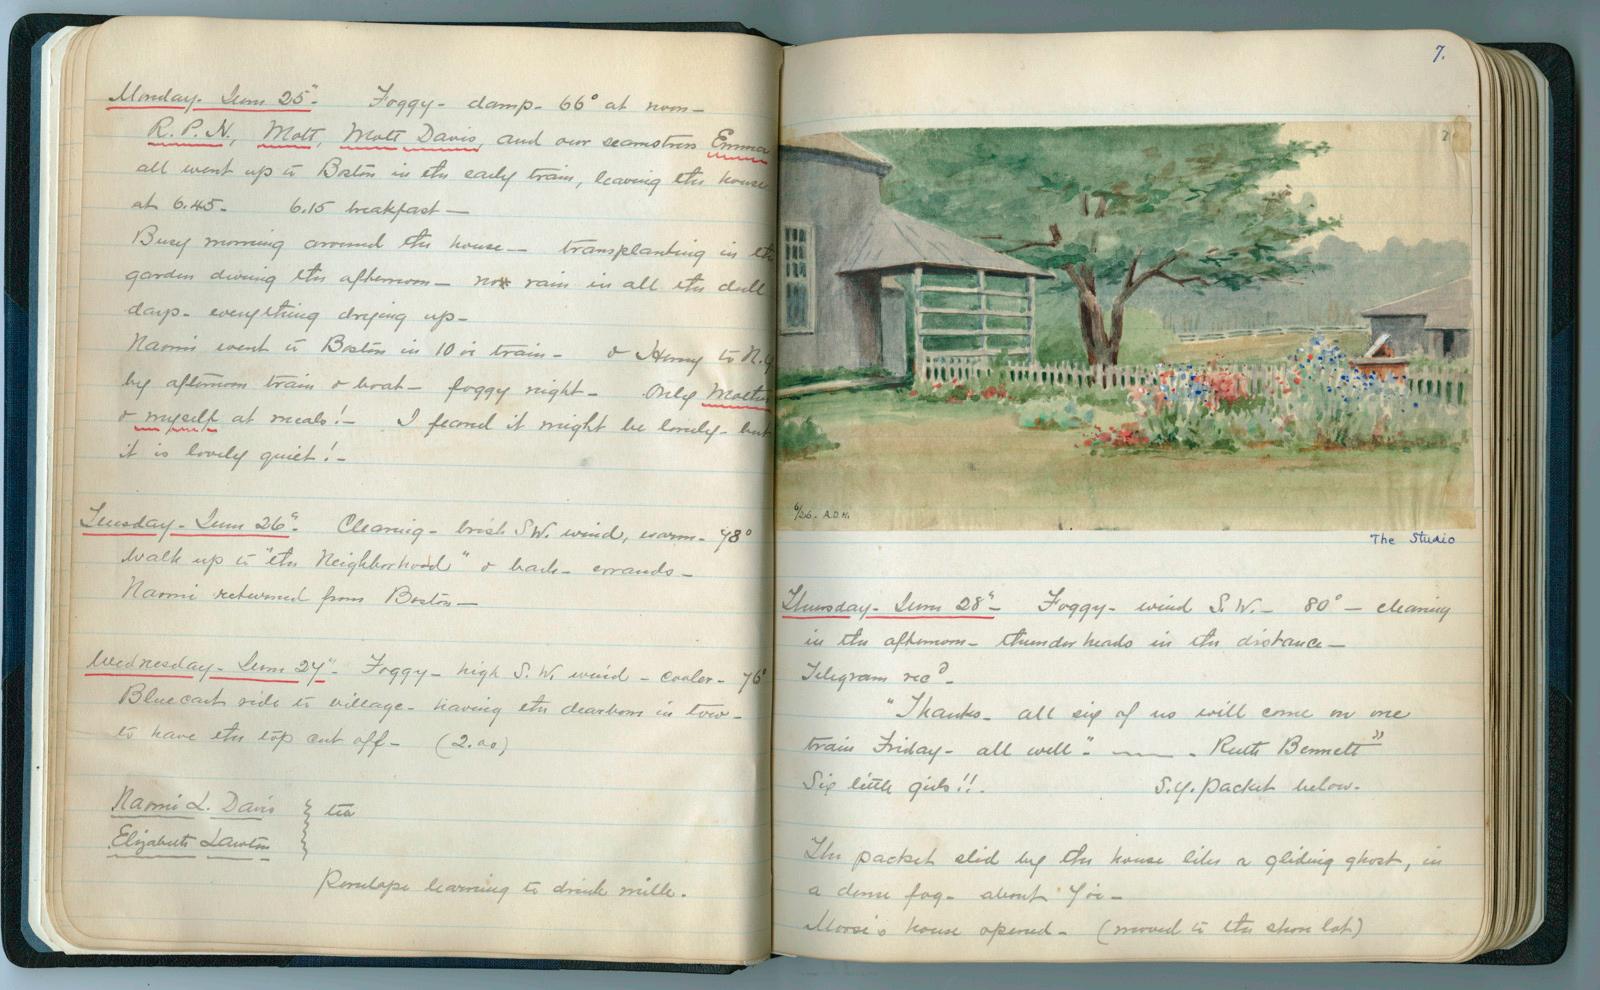 Monday - June 25" - Foggy - damp - 66° at noon -
R.P.N., Molt, Molt Davis, and our seamstress Emma
all went up to Boston in the early train, leaving the house
at 6.45 - 6.15 breakfast -
Busy morning around the house - transplanting in the
garden during the afternoon - no rain in all the dull
days - everything drying up -
Naomi went to Boston in 10 train - & Henry to N.Y
by afternoon train & boat - foggy night - Only
& myself at meals! - I feared it might be lonely - but
it is lovely quiet! -
Tuesday - June 26" - Clearing - brisk S.W. wind, warm - 78°
Walk up to "the Neighborhood" & back - errands -
Naomi returned from Boston -
Wednesday - June 27" - Foggy - high S.W. wind - cooler - 76°
Bluecart ride to village - having the dearborn in tow -
to have the top cut off - (2.00)
Naomi L. Davis } tea
Elizabeth Lawton
Penelope learning to drink milk.
7.
7
6/26. A.D.H.
The Studio
Thursday - June 28" - Foggy - wind S.W. - 80° - clearing
in the afternoon - thunder heads in the distance -
Telegram rec'd -
"Thanks - all six of us will come on one
train Friday - all well" - . Ruth Bennett"
Six little girls!! - S.Y. Packet below.
The packet slid by the house like a gliding ghost, in
a dense fog - about 7 -
Morse's house opened - (moved to the shore lot)